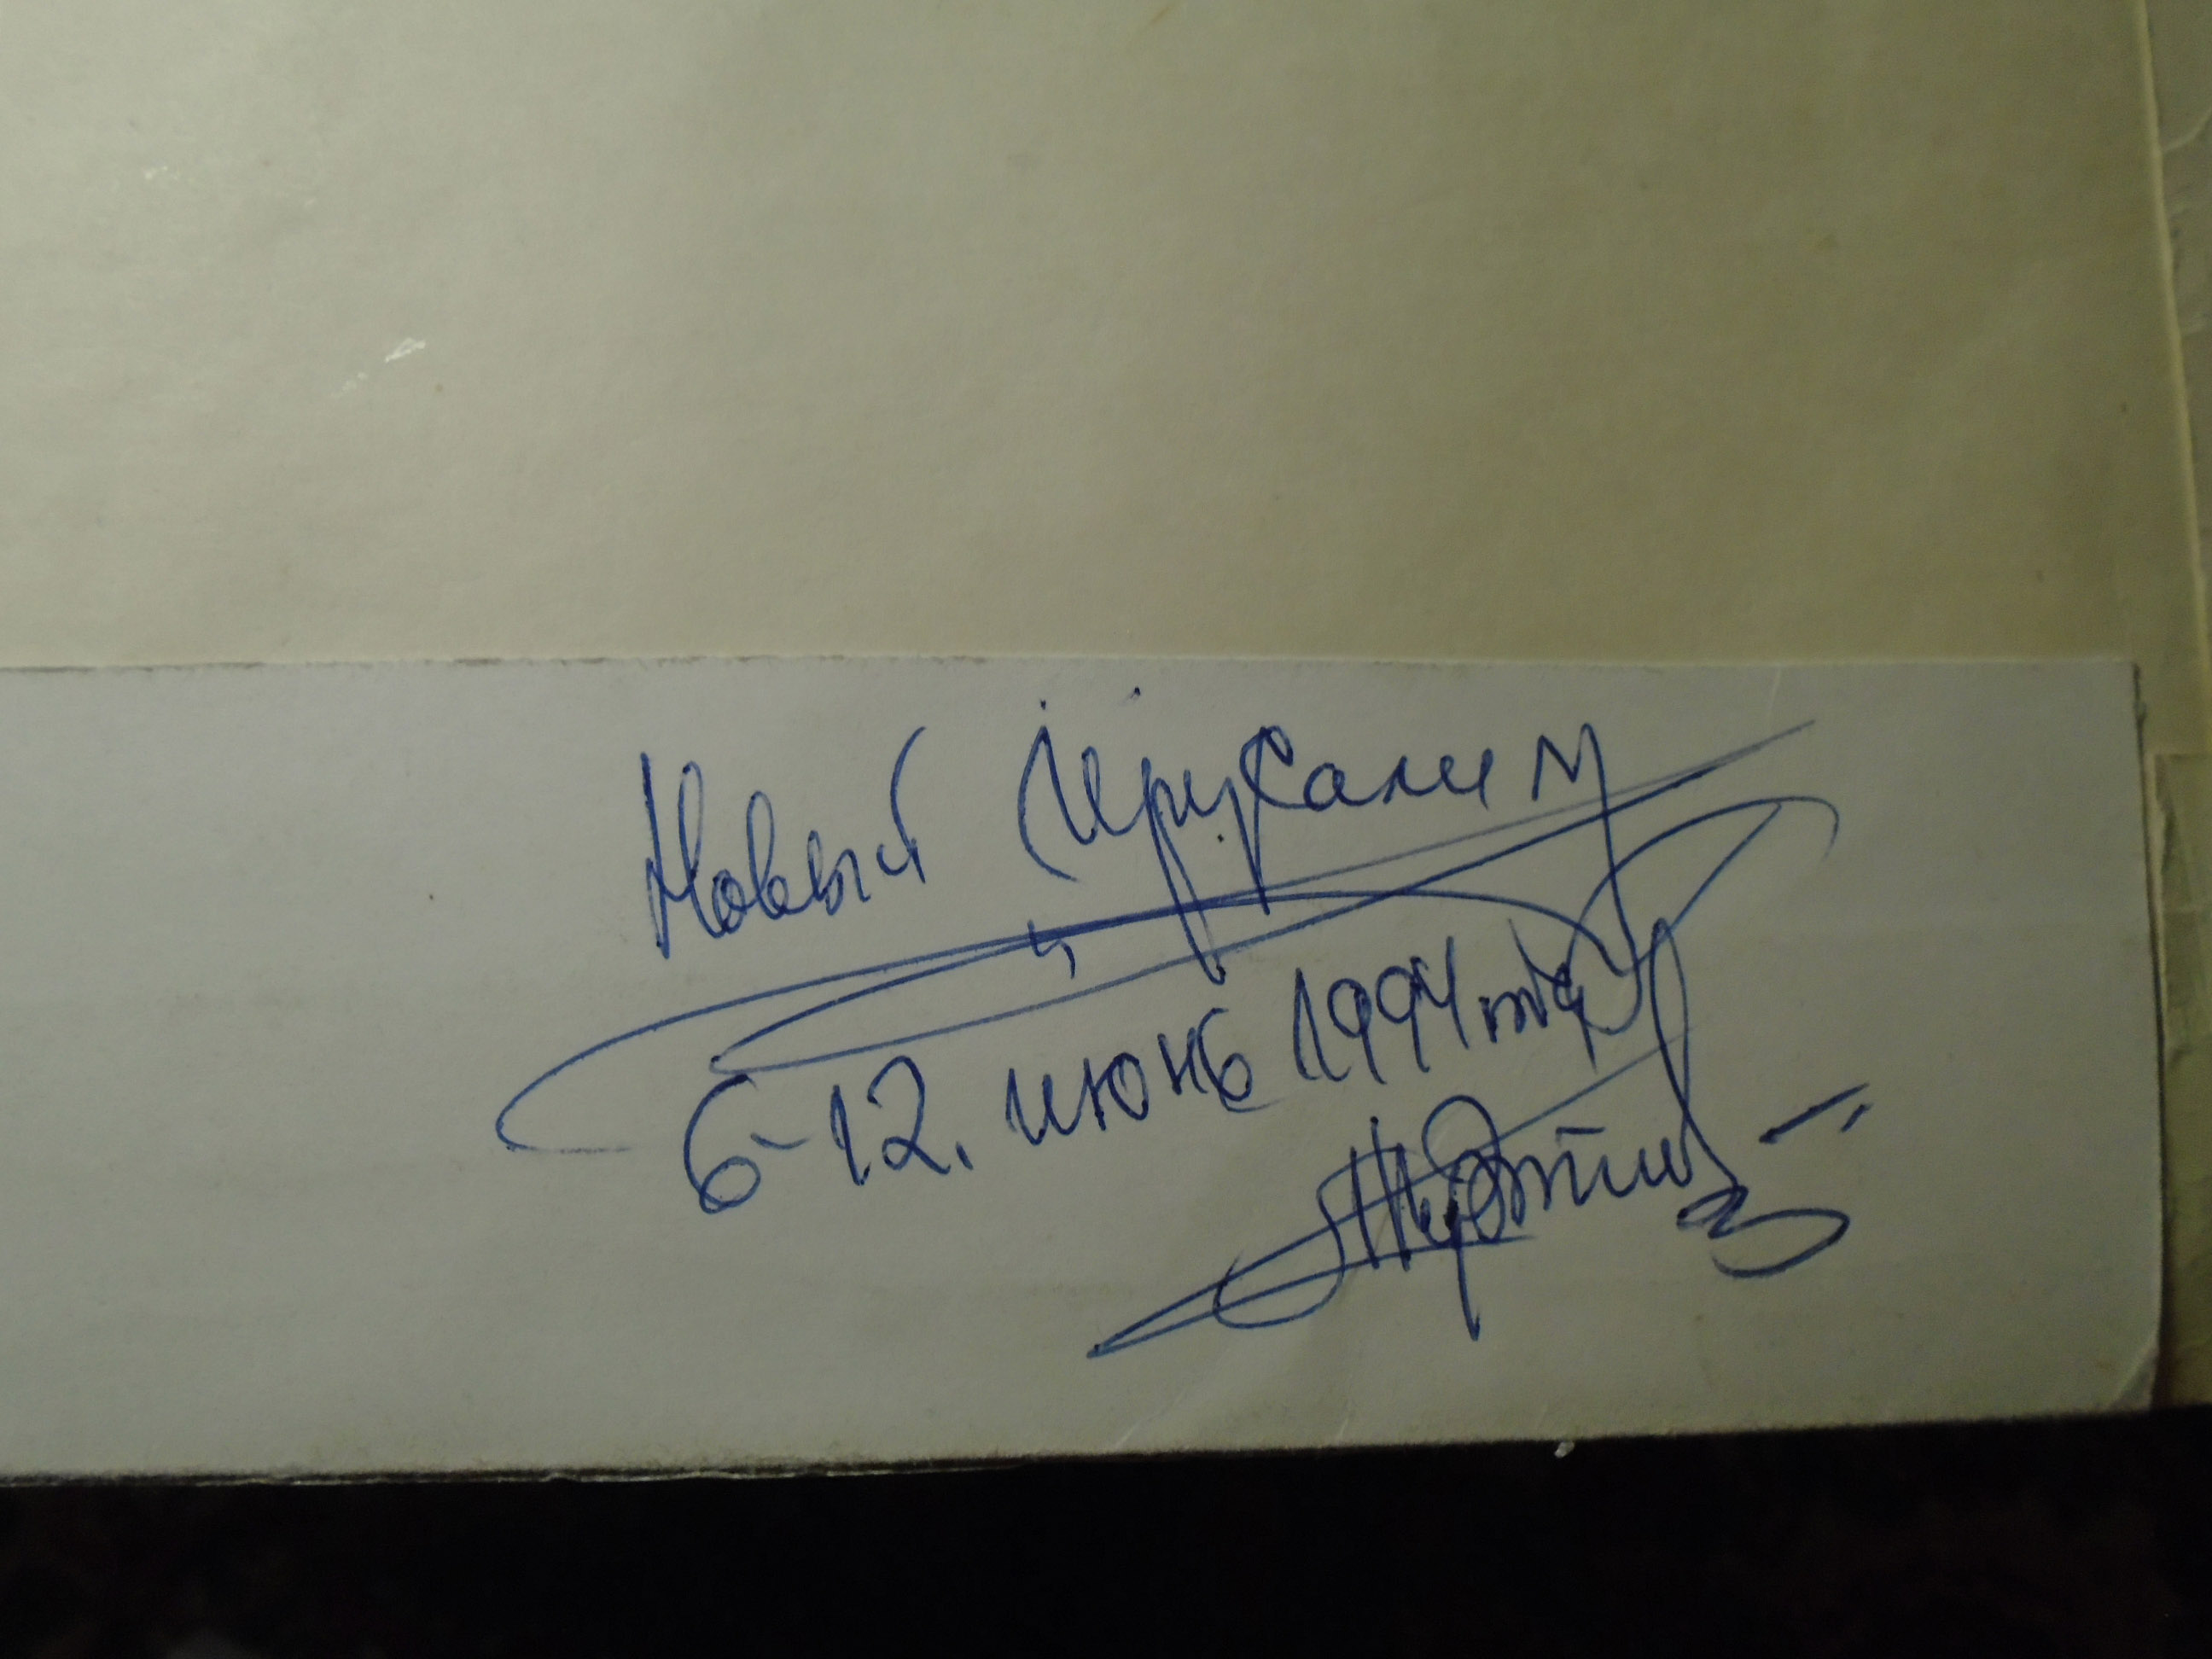 Новый Ирусалим
6-12. июнь 1994 год